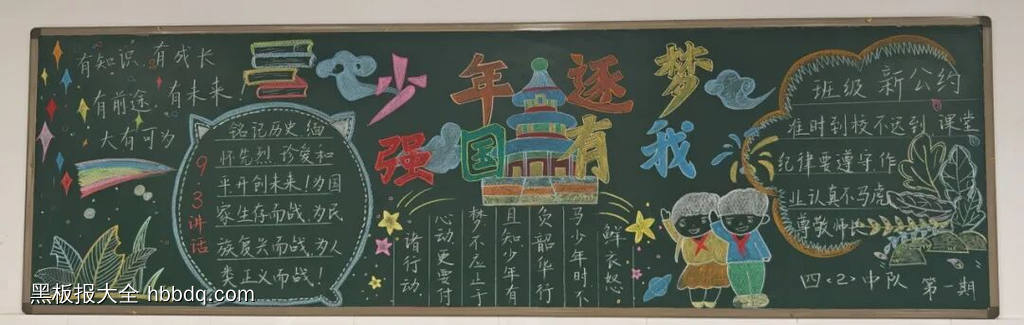 有知识 有成长
有前途 有未来
大有可为
9.3讲话
铭记历史 缅
怀先烈 珍爱和
平开创未来!为国
家生存而战,为民
族复兴而战,为人
类正义而战!
少年逐梦
强国有我
鲜衣怒
马少年时不
负韶华行
且知少年有
梦不应止于
心动更要付
诸行动
班级新公约
准时到校不迟到 课堂
纪律要遵守作
业认真不马虎
尊敬师长
四(2)中队 第一期
黑板报大全 hbbdq.com